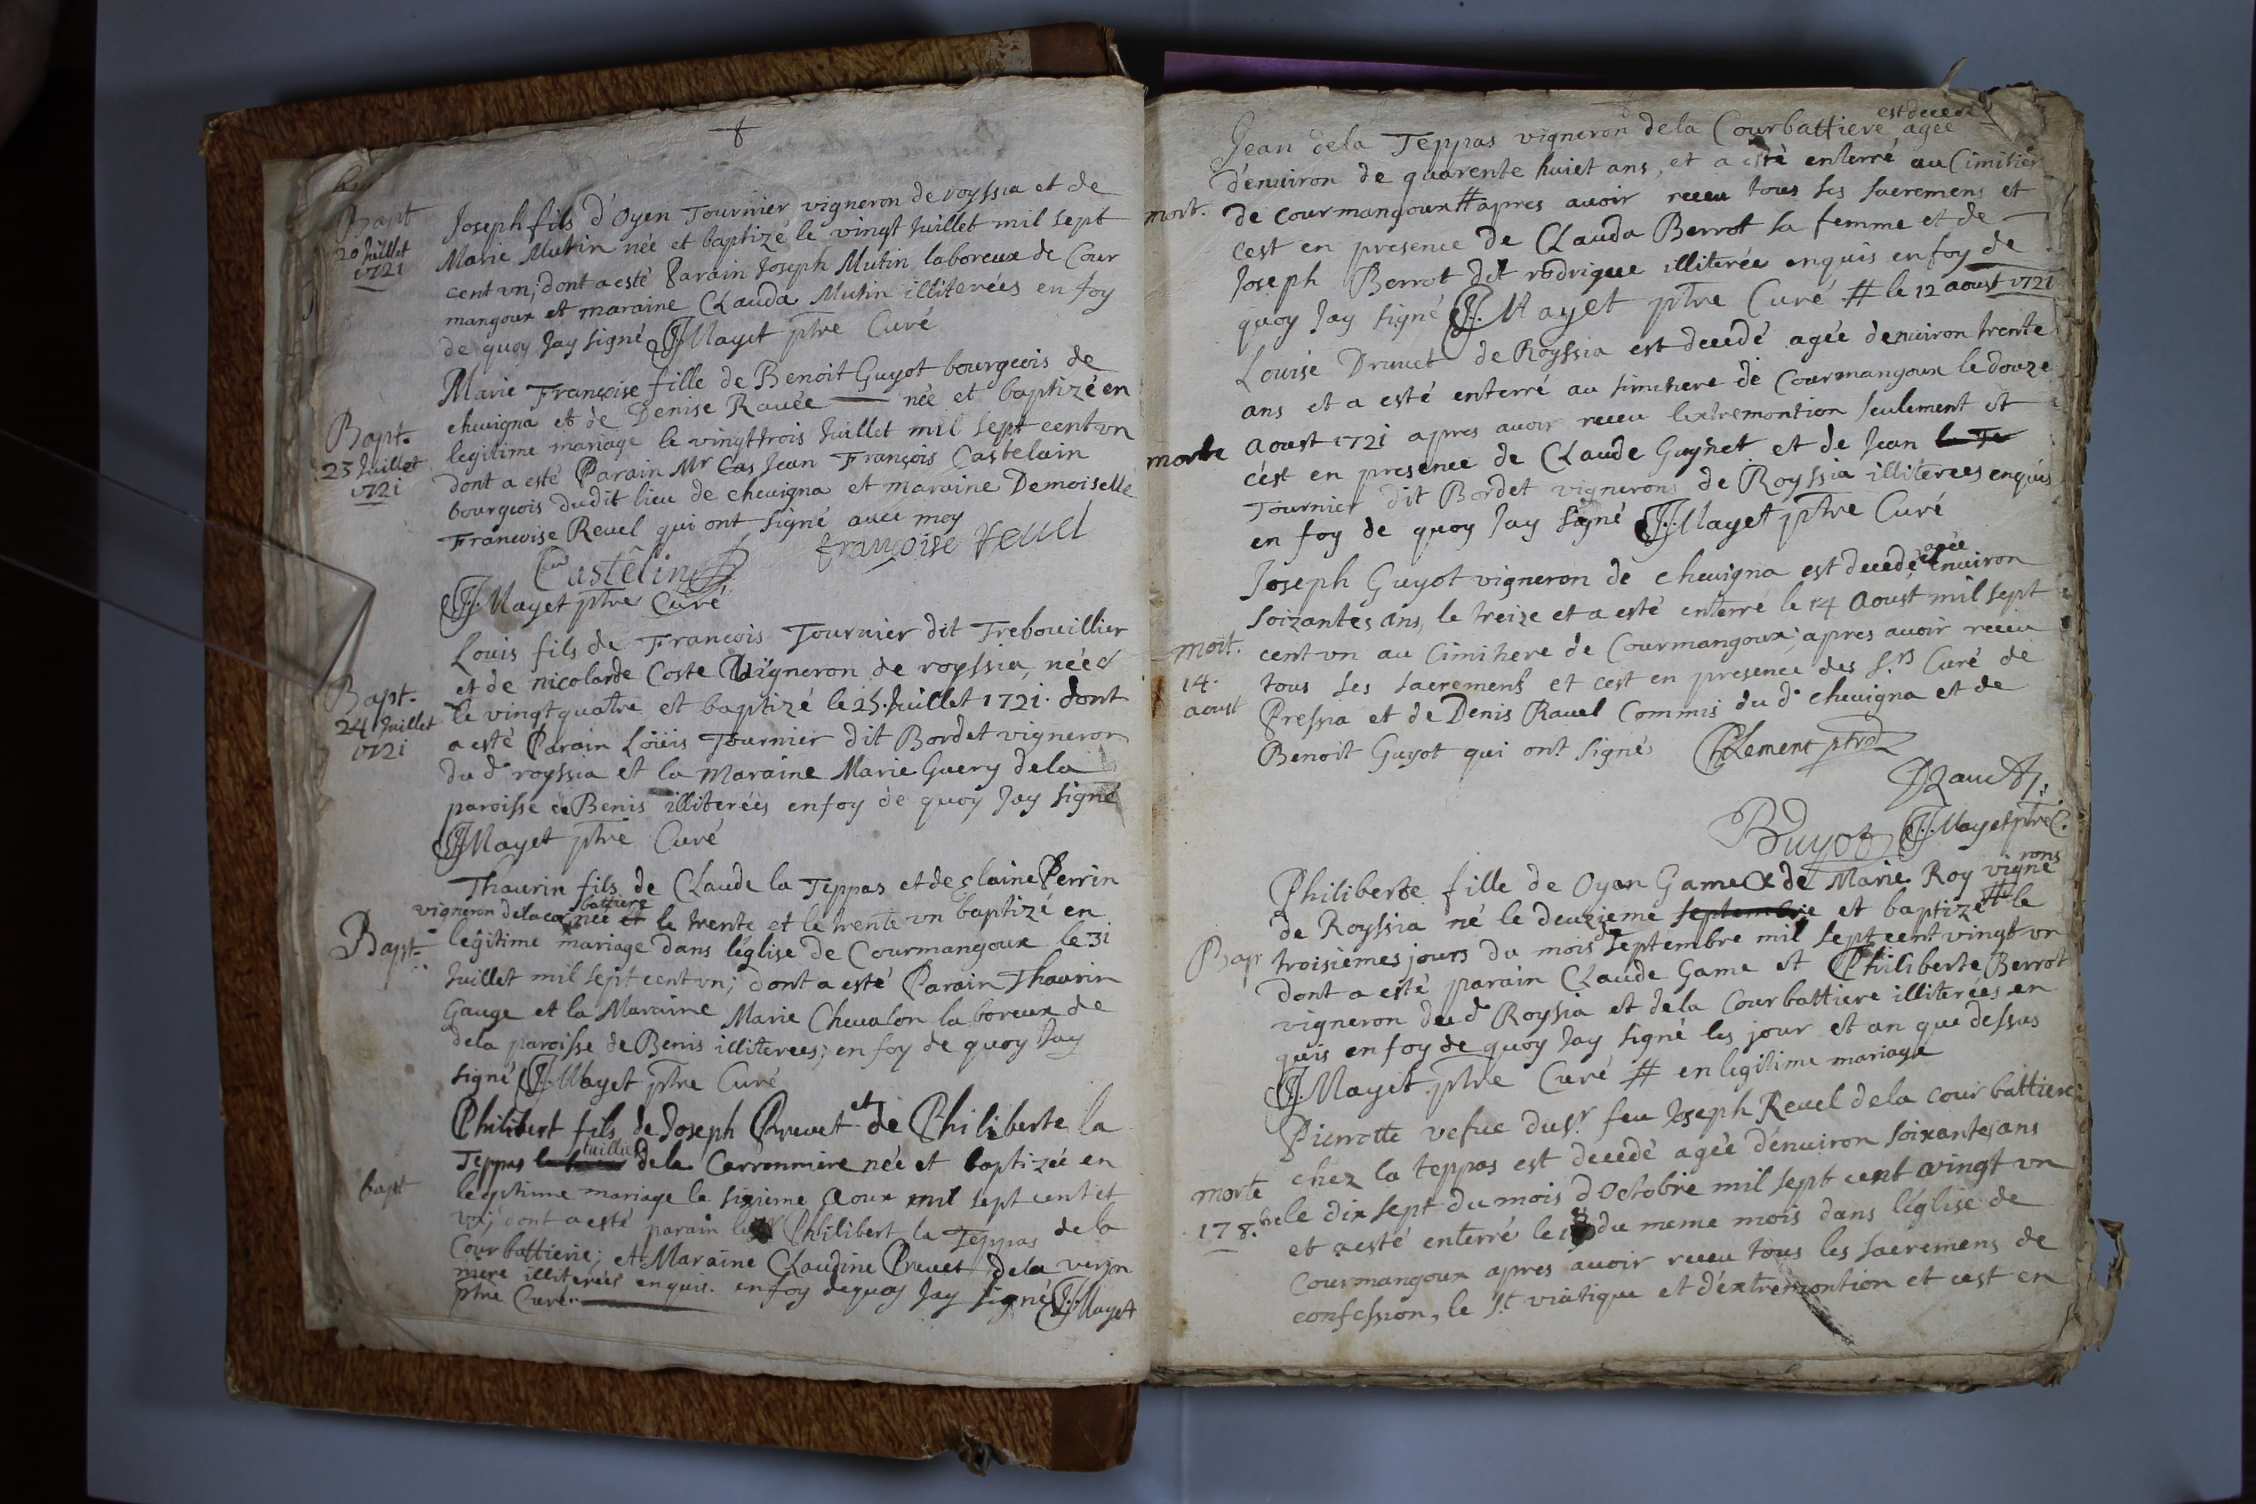 Bapt
20 Juillet
1721
Joseph fils d'Oyen Tournier vigneron de royssia et de
Marie Mutin née et baptizé le vingt Juillet mil sept
cent vn; dont a esté Parain Joseph Mutin laboreux de Cour
mangoux et maraine Clauda Mutin illiterées en foy
de quoy Jay signé J. Mayet ptre Curé
Bapt.
23 Juillet
1721
Marie Françoise fille de Benoit Guyot bourgeois de
cheuigna et de Denise Rauée née et baptizé en
legitime mariage le vingttrois Juillet mil sept cent vn
dont a esté Parain Mr Jean François Castelain
bourgeois dudit lieu de cheuigna et maraine Demoiselle
Francoise Reuel qui ont signé auec moy
Castêlin françoise reuel
J. Mayet ptre Curé
Bapt.
24 Juillet
1721
Louis fils de François Tournier dit Trebouillier
et de nicolarde Coste Vigneron de royssia, née
le vingtquatre et baptizé le 25. Juillet 1721. dont
a esté Parain Loüis Tournier dit Bordet vigneron
du d. royssia et la maraine Marie Guery dela
paroisse de Benis illiterées en foy de quoy Jay signé
J. Mayet ptre Curé
Bapt.
Thaurin fils de Claude la Teppas et de glaine Perrin
battiere
vigneron dela cour née et le trente et le trente vn baptizé en
legitime mariage dans l'église de Courmangoux le 31
Juillet mil sept cent vn; dont a esté Parain Thaurin
Gauge et la Maraine Marie Cheualon laboreux de
dela paroisse de Benis illiterees; en foy de quoy Jay
signé J. Mayet ptre Curé
bapt
Philibert fils de Joseph Preuet et de Philiberte la
Teppas de la Carronniere née et baptizée en
legitime mariage le sixieme Aoux mil sept cent et
vn; dont a esté parain Philibert la Teppas de la
Courbattiere; et Maraine Claudine Preuet dela verjon
niere illiterées enquis. en foy dequoy Jay signé J. Mayet
ptre Curé.
est decedé
Jean dela Teppas vigneron dela Courbattiere agée
d'enuiron de quarente huict ans, et a esté enterré au Cimitier
mort.
de courmangoux # apres auoir receu tous ses sacremens et
cest en presence de Clauda Berrot sa femme et de
Joseph Berrot dit rodrigue illiterée enquis en foy de
quoy Jay signé J. Mayet ptre Curé # le 12 aoust 1721
Louise Druuet de Royssia est decedé agée denuiron trente
ans et a esté enterré au simitiere de Courmangoux le douze
morte
Aoust 1721 apres auoir receu lextremontion seulement et
cést en presence de Claude Guynet et de Jean
Tournier dit Bordet vignerons de Royssia illiterees enquis
en foy de quoy Jay signé J. Mayet ptre Curé
agée
Joseph Guyot vigneron de cheuigna est decedé enuiron
soizantes ans, le treize et a esté enterré le 14 Aoust mil sept
mort.
14.
aoust
cent vn au Cimitiere de Courmangoux; apres auoir receu
tous ses sacremens et cest en presence des Srs Curé de
Pressia et de Denis Rauel Commis du d. cheuigna et de
Benoit Guyot qui ont signé Clement ptre
BGuyot J. Mayet ptre C.
rons
Philiberte fille de Oyan Game & de Marie Roy vigne
de Royssia né le deuzieme septembre et baptizé # le
Bapt
troisiemes jours du mois de septembre mil sept cent vingt vn
dont a esté parain Claude Game et Philiberte Berrot
vigneron du d. Roysia et dela Courbattiere illiterées en
quis en foy de quoy Jay signé les jour et an que dessus
J. Mayet ptre Curé # en legitime mariage
Pierrotte vefue du Sr. feu Joseph Reuel dela courbattiere
chez la teppas est decedé agée d'enuiron soixantes ans
morte
178.bre
le dix sept du mois d'Octobre mil sept cent vingt vn
et a esté enterré le 18 du meme mois dans l'église de
Courmangoux apres auoir receu tous les sacremens de
confession, le St viatique et d'extremontion et cest en